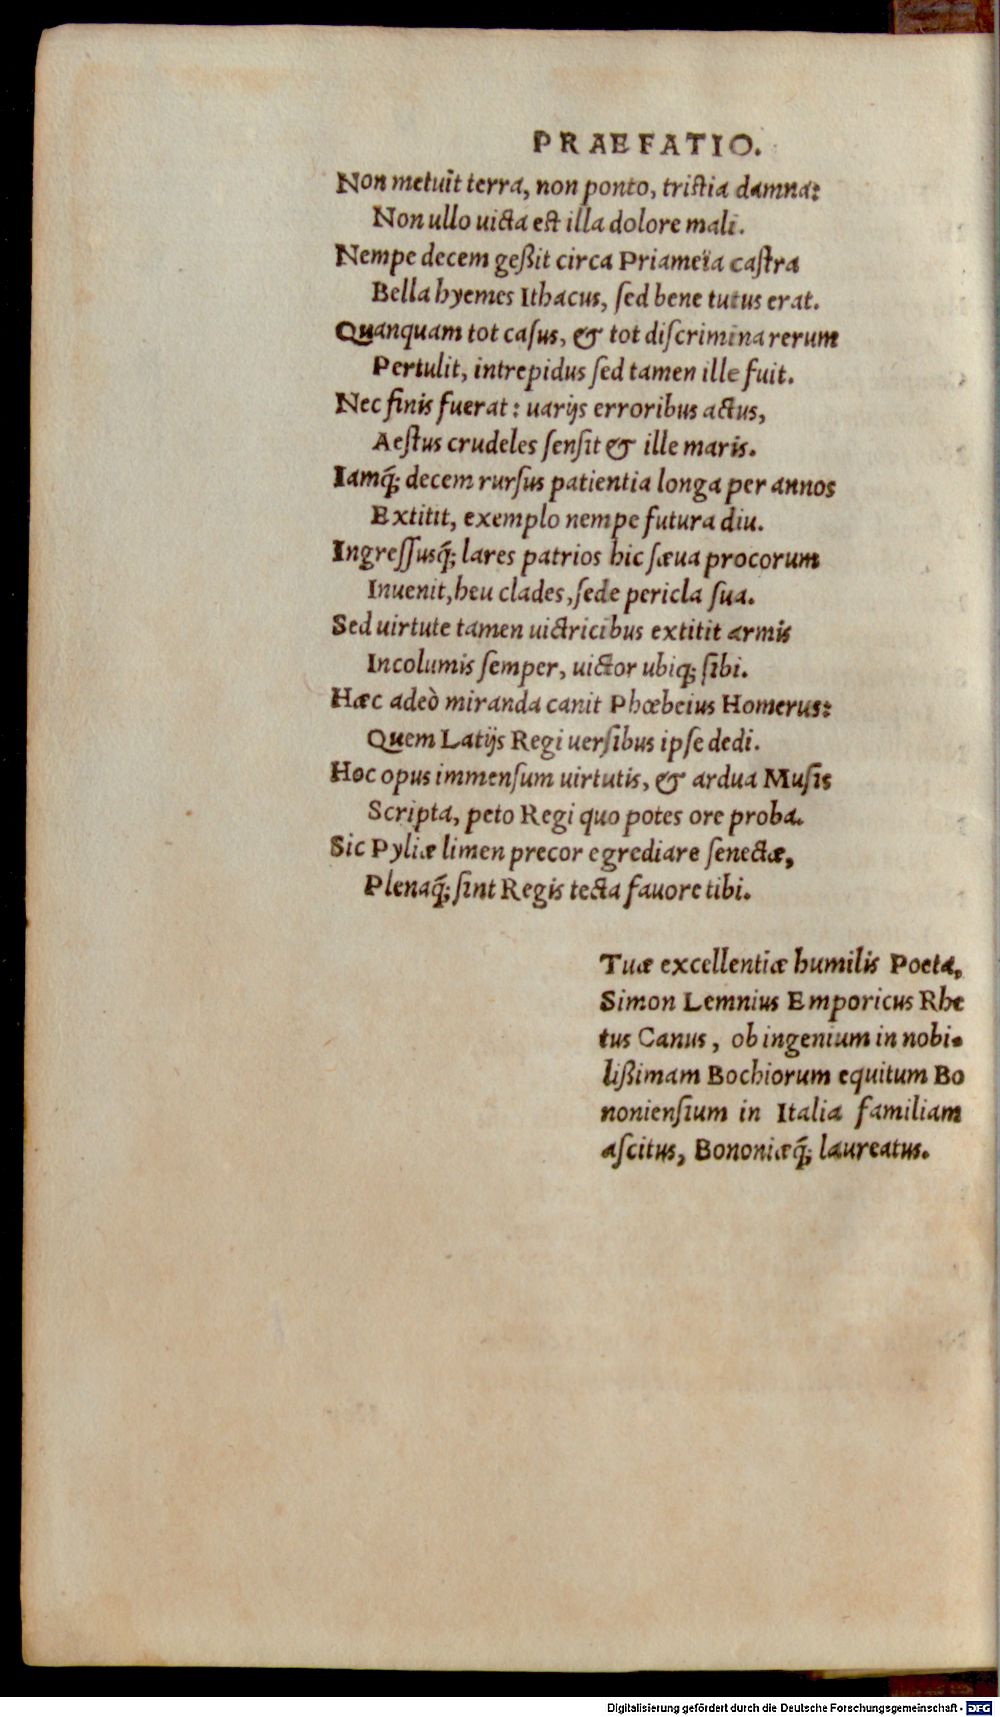 PRAEFATIO.
Non metuit terra, non ponto, tristia damna:
Non ullo uicta est illa dolore mali.
Nempe decem geßit circa Priameïa castra
Bella hyemes Ithacus, sed bene tutus erat.
Quanquam tot casus, & tot discrimina rerum
Pertulit, intrepidus sed tamen ille fuit.
Nec finis fuerat: uarijs erroribus actus,
Aestus crudeles sensit & ille maris.
Iamq̃; decem rursus patientia longa per annos
Extitit, exemplo nempe futura diu.
Ingressusq̃; lares patrios hic sæua procorum
Inuenit, heu clades, sede pericla sua.
Sed uirtute tamen uictricibus extitit armis
Incolumis semper, uictor ubiq; sibi.
Hæc adeò miranda canit Phœbeius Homerus:
Quem Latijs Regi uersibus ipse dedi.
Hoc opus immensum uirtutis, & ardua Musis
Scripta, peto Regi quo potes ore proba.
Sic Pyliæ limen precor egrediare senectæ,
Plenaq̃; sint Regis tecta fauore tibi.
Tuæ excellentiæ humilis Poeta,
Simon Lemnius Emporicus Rhe
tus Canus, ob ingenium in nobi-
lißimam Bochiorum equitum Bo
noniensium in Italia familiam
ascitus, Bononiæq̃; laureatus.
Digitalisierung gefördert durch die Deutsche Forschungsgemeinschaft - DFG